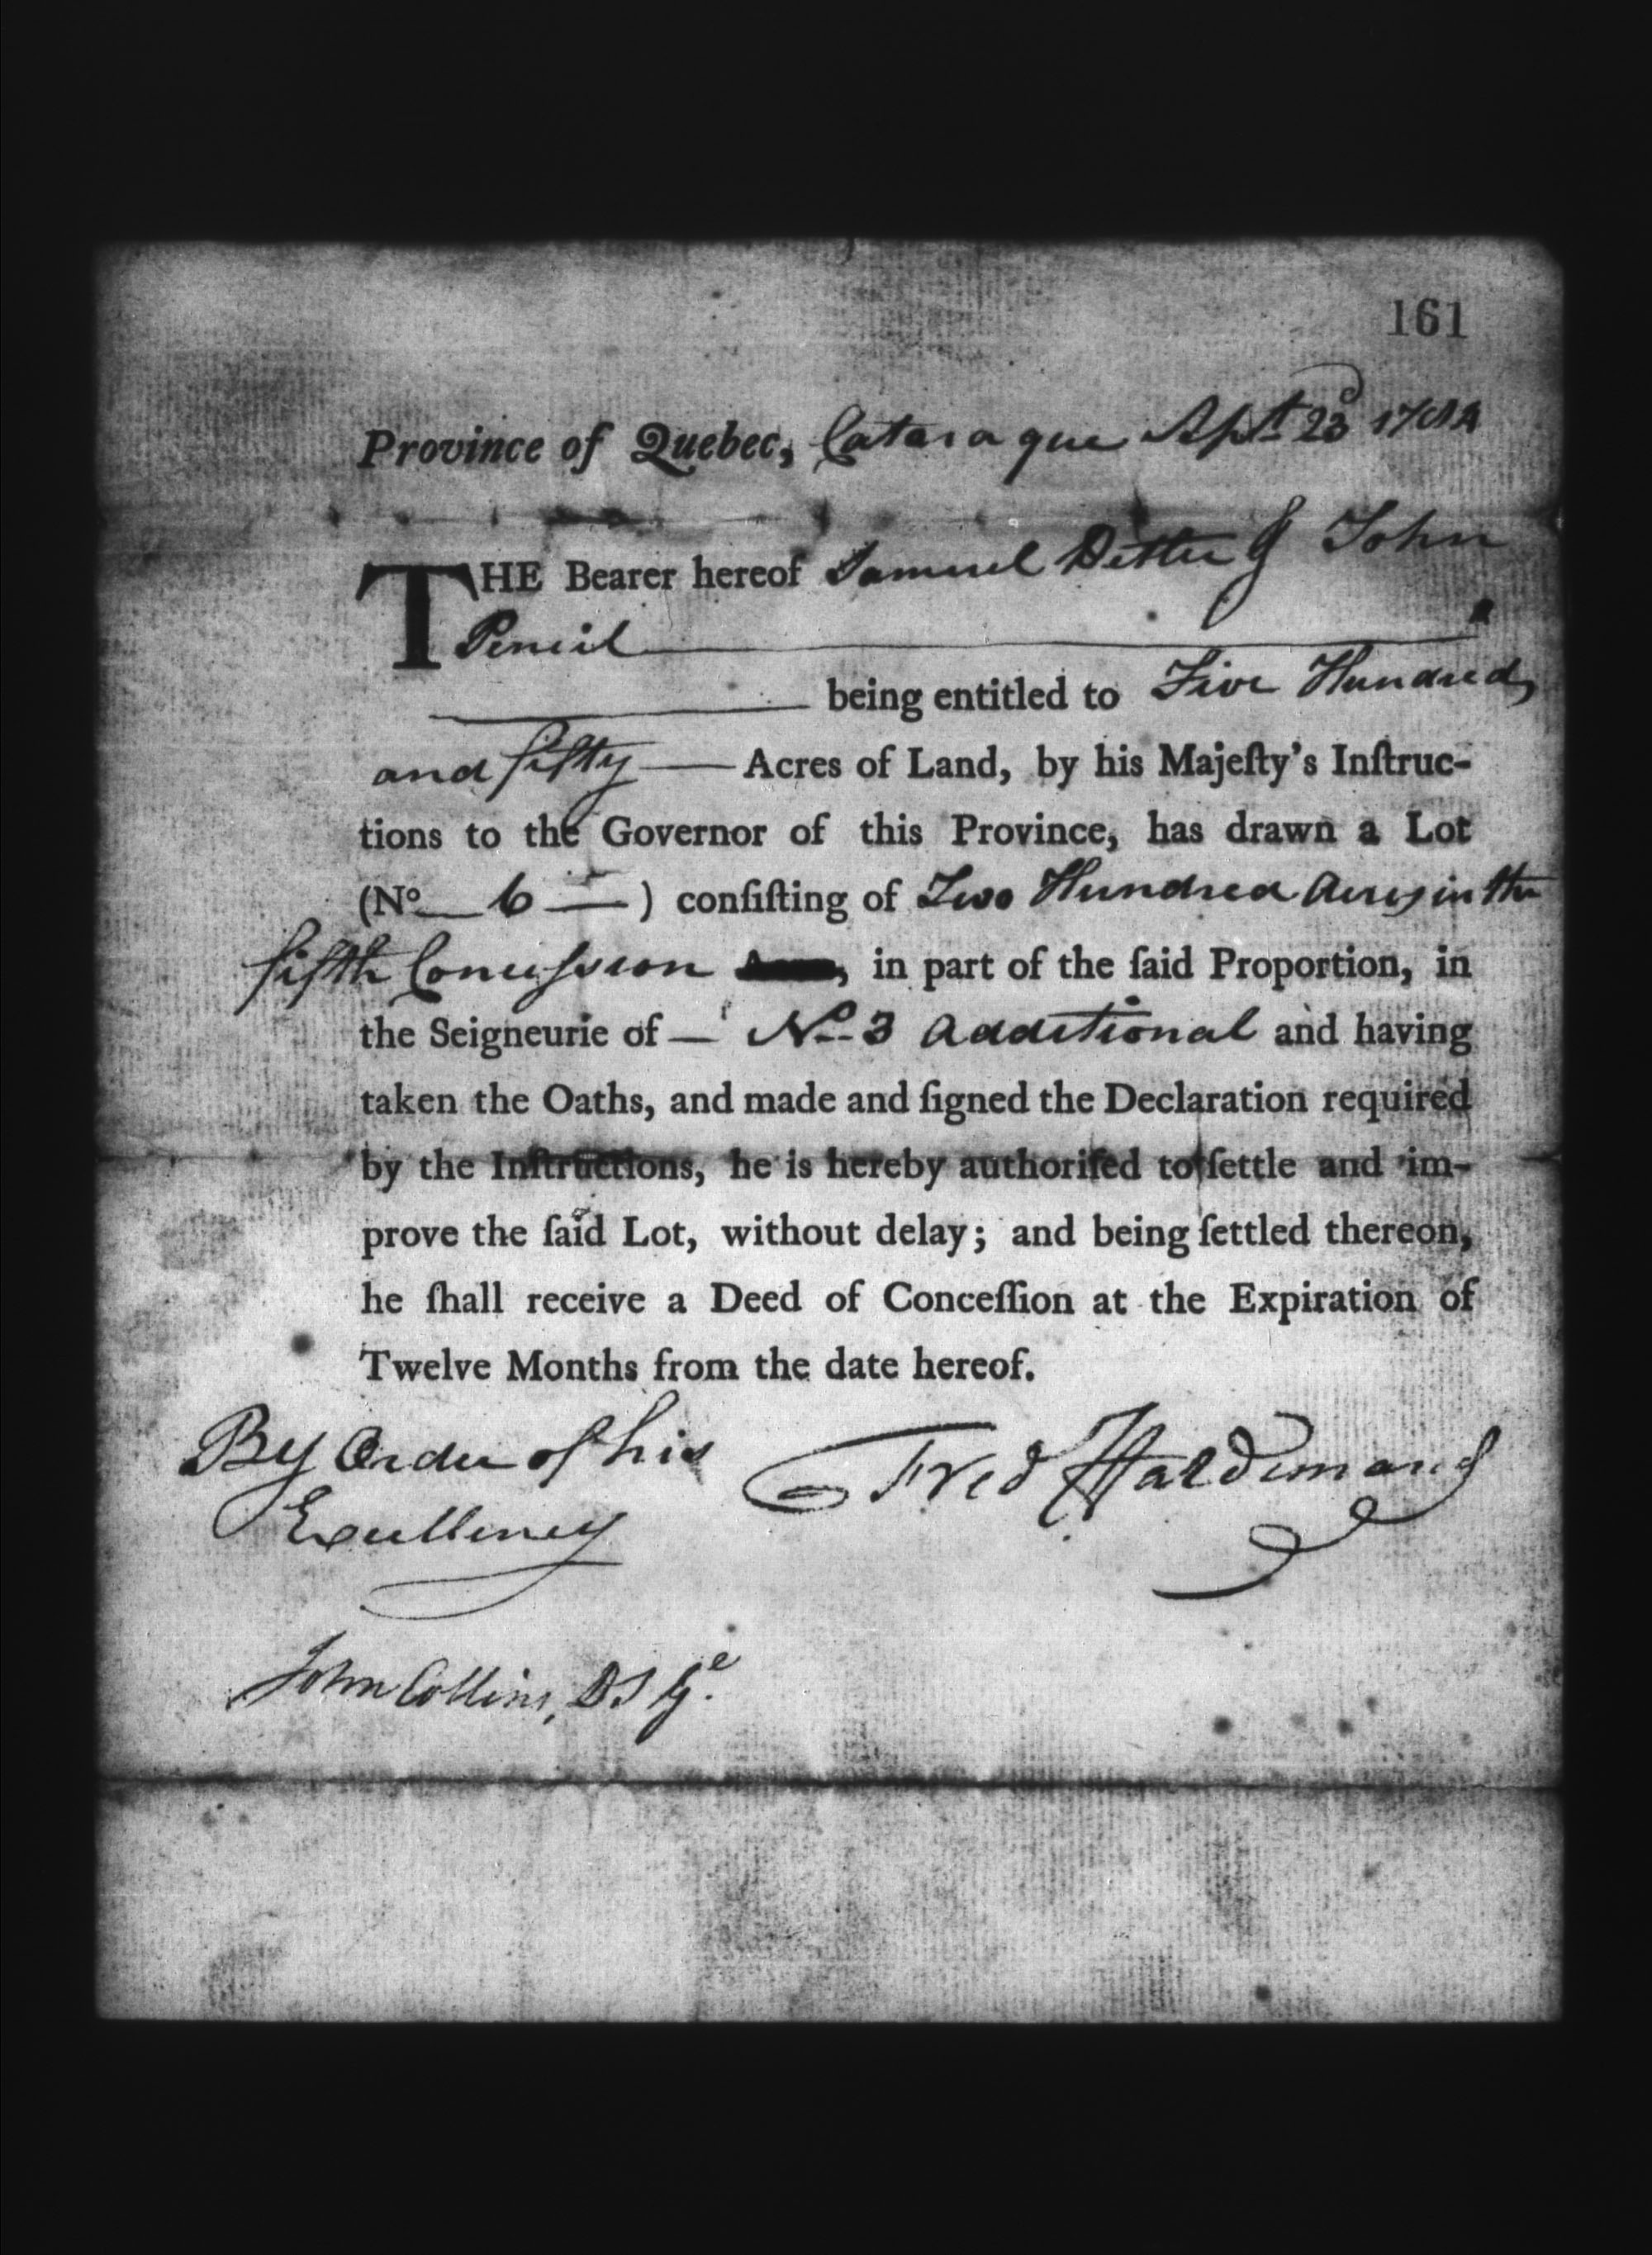 161
Province of Quebec, Cataraque Sept 23d 1784
THE Bearer hereof Samuel Detter & John
Pencil
being entitled to Five Hundred,
and fifty Acres of Land, by his Majeſty's Inſtruc-
tions to the Governor of this Province, has drawn a Lot
(No 6 ) conſiſting of Two Hundred Acres in the
fifth Concession , in part of the ſaid Proportion, in
the Seigneurie of No 3 Additional and having
taken the Oaths, and made and ſigned the Declaration required
by the Inſtructions, he is hereby authoriſed to ſettle and im-
prove the ſaid Lot, without delay; and being ſettled thereon,
he ſhall receive a Deed of Conceſſion at the Expiration of
Twelve Months from the date hereof.
By Order of his Fred Haldimand
Excellency
John Collins, D S Ge.